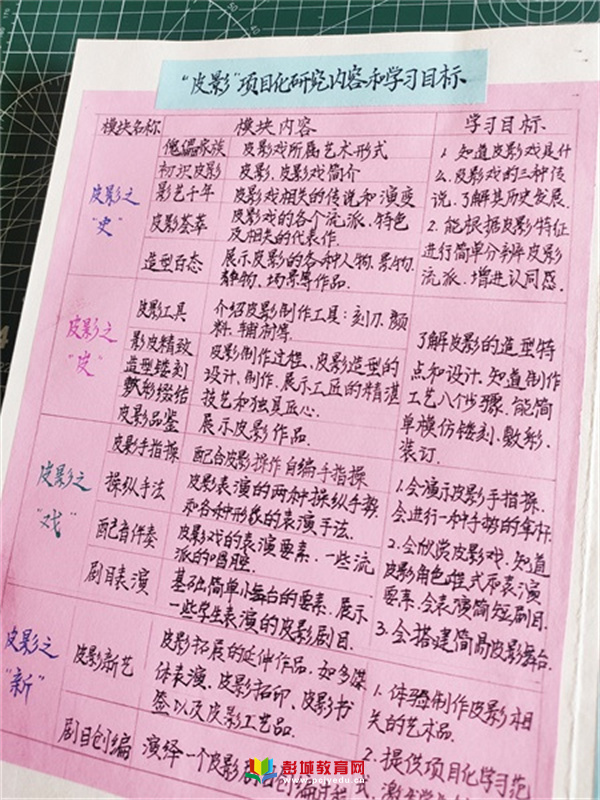 “皮影”项目化研究内容和学习目标
模块名称 模块内容 学习目标
皮影之“史”
傀儡家族 皮影戏所属艺术形式
初识皮影 皮影、皮影戏简介
影艺千年 皮影戏相关的传说和演变
皮影荟萃 皮影戏的各个流派、特色
及相关的代表作.
造型百态 展示皮影的各种人物、景物、
静物、场景等作品.
1. 知道皮影戏是什
么、皮影戏的三种传
说、了解其历史发展.
2. 能根据皮影特征
进行简单分辨皮影
流派、增进认同感.
皮影之“皮”
皮影工具 介绍皮影制作工具：刻刀、颜
料、辅材等.
影皮精致
造型镂刻
敷彩缀结
皮影制作过程、皮影造型的
设计、制作、展示工匠的精湛
技艺和独具匠心.
皮影品鉴 展示皮影作品.
了解皮影的造型特
点和设计、知道制作
工艺八个步骤、能简
单模仿镂刻、敷彩、
装订.
皮影之“戏”
皮影手指操 配合皮影操作自编手指操
操纵手法 皮影表演的两种操纵手势
和各种形象的表演手法.
配音伴奏 皮影戏的表演要素、一些流
派的唱腔
剧目表演 基础简单小舞台的要素、展示
一些学生表演的皮影剧目.
1. 会演示皮影手指操、
会进行一种手势的拿杆.
2. 会欣赏皮影戏、知道
皮影角色程式和表演
要素、会表演简短剧目.
3. 会搭建简易皮影舞台.
皮影之“新”
皮影新艺 皮影拓展的延伸作品、如多媒
体表演、皮影拓印、皮影书
签以及皮影工艺品.
剧目创编 演绎一个皮影
1. 体验制作皮影相
关的艺术品.
2. 提供项目化学习范
式、激
彭城教育网
www.pcjyedu.cn